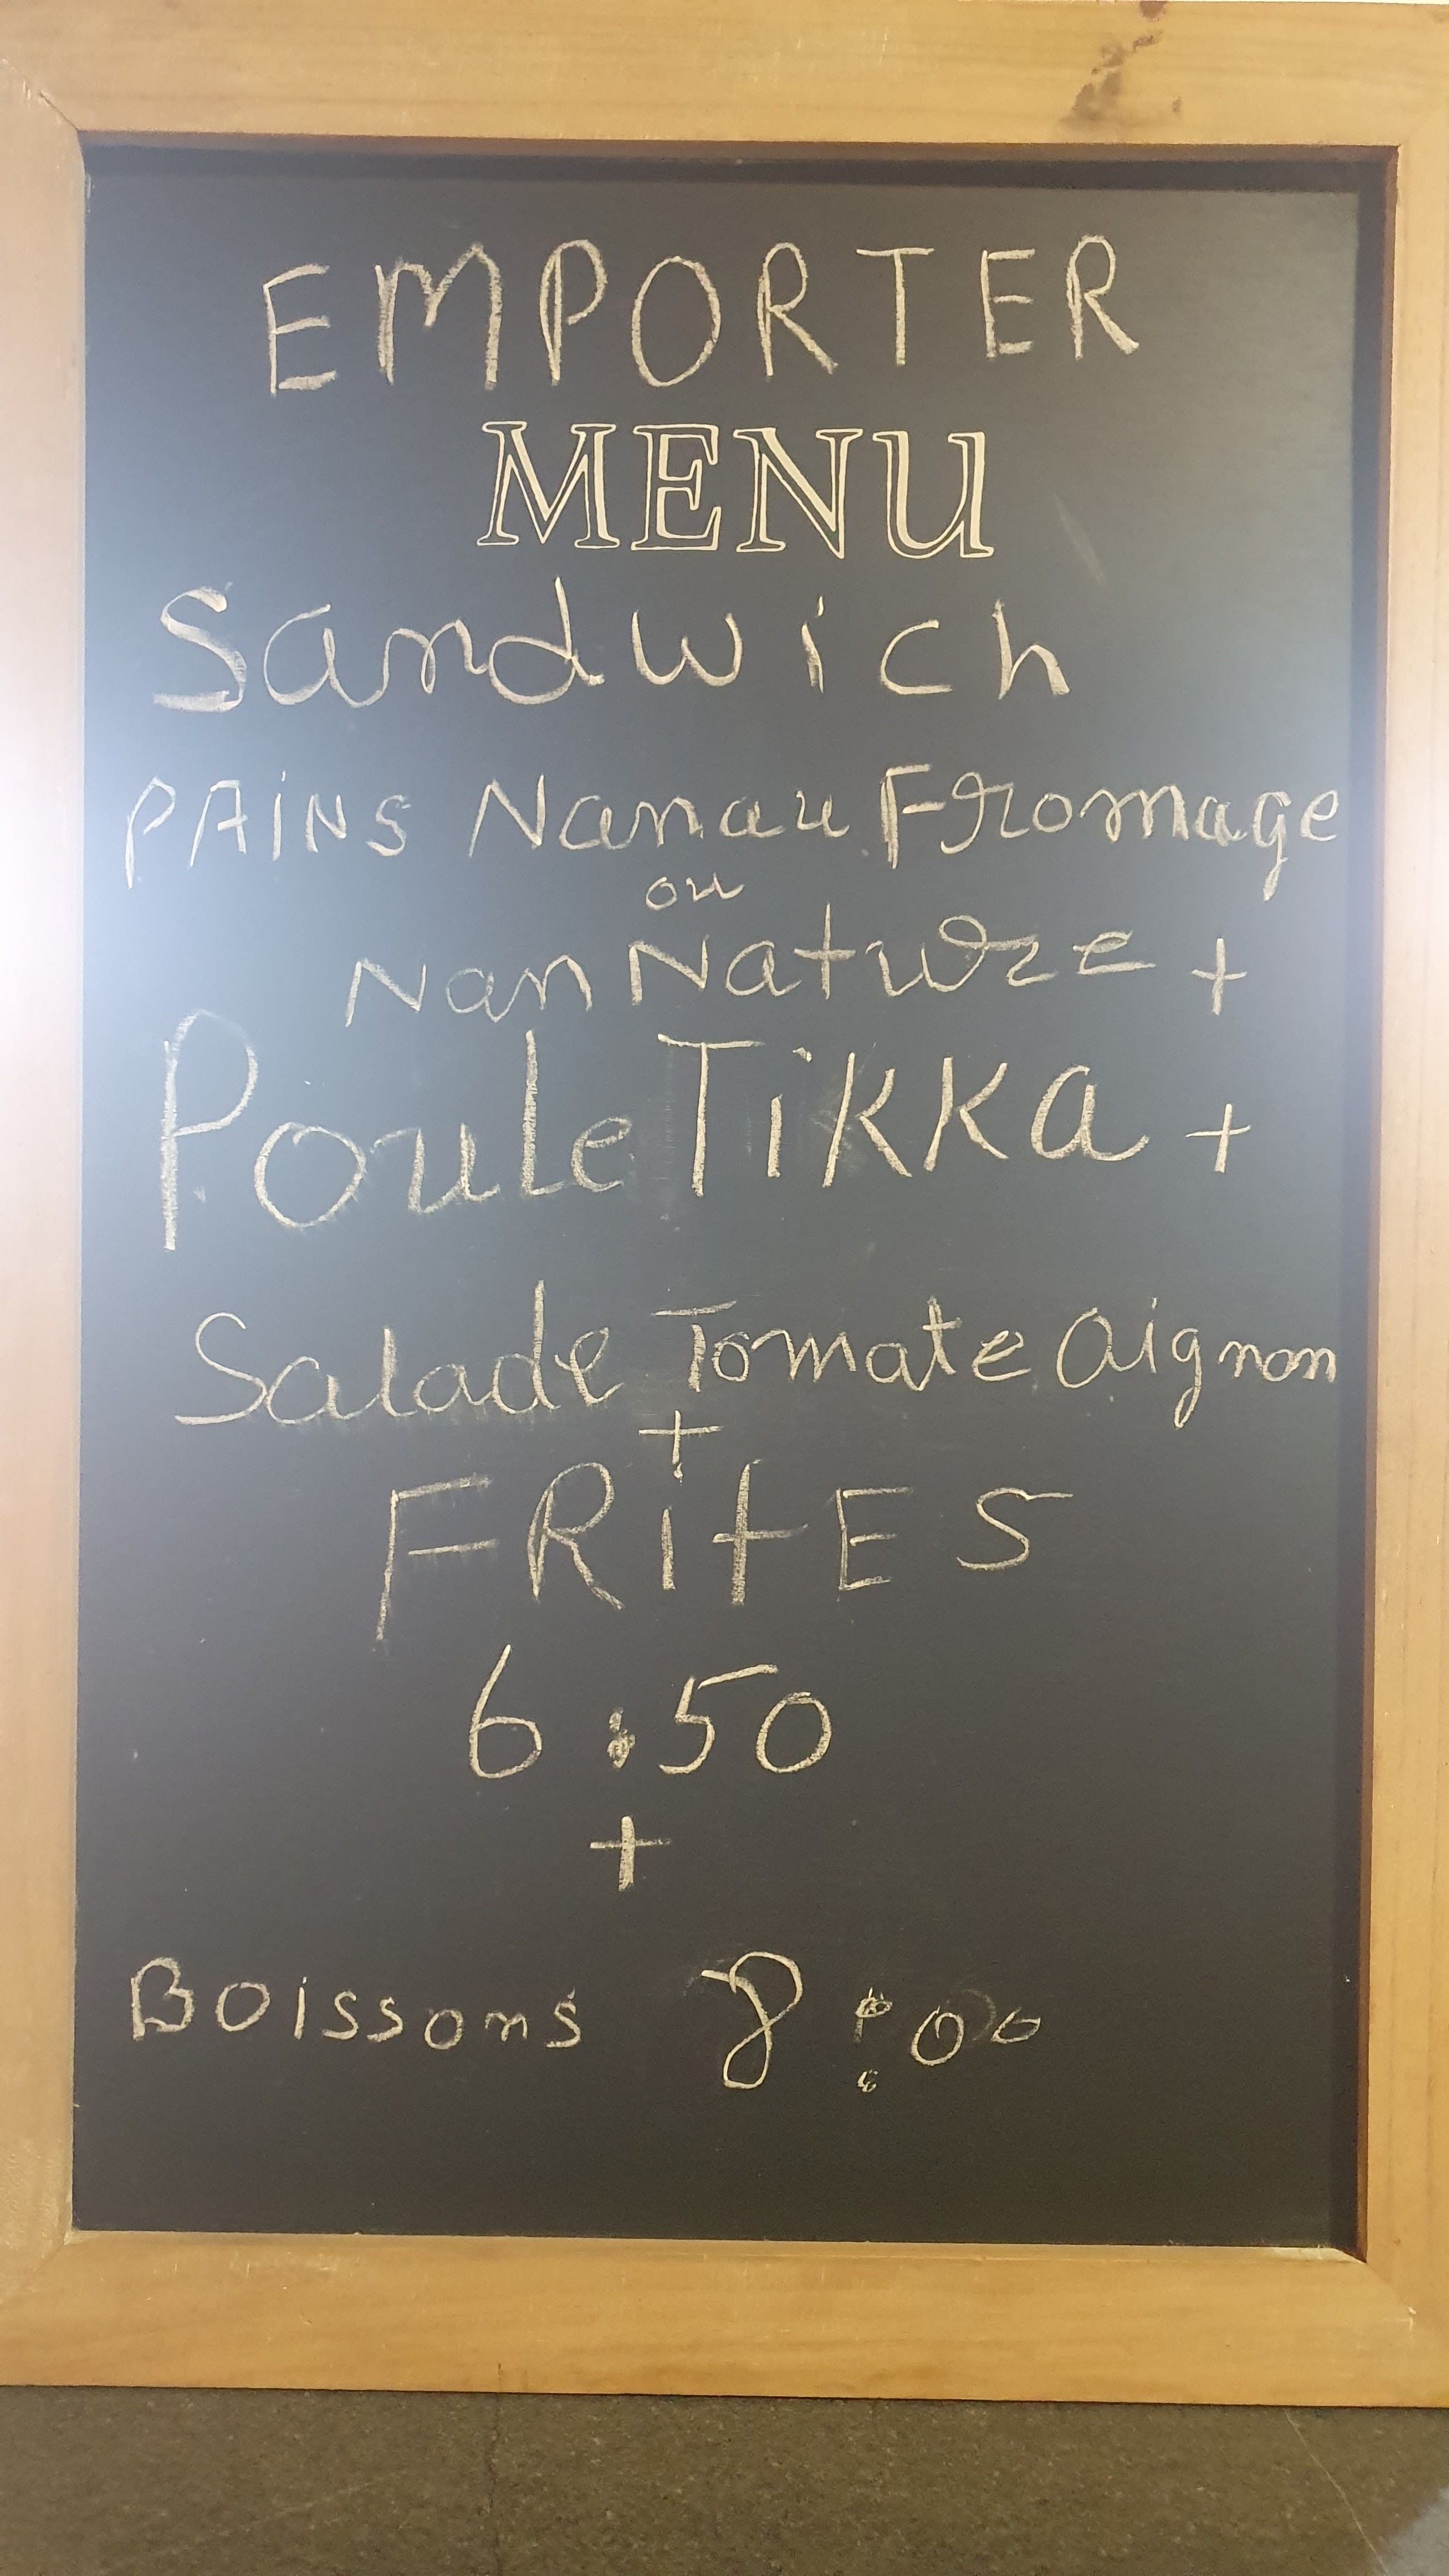 EMPORTER
MENU
Sandwich
PAiNS Nanau Fromage
ou
Nan Nature +
Poule TiKKa +
Salade Tomate Oignon
+
FRitES
6:50
+
Boissons 8:00